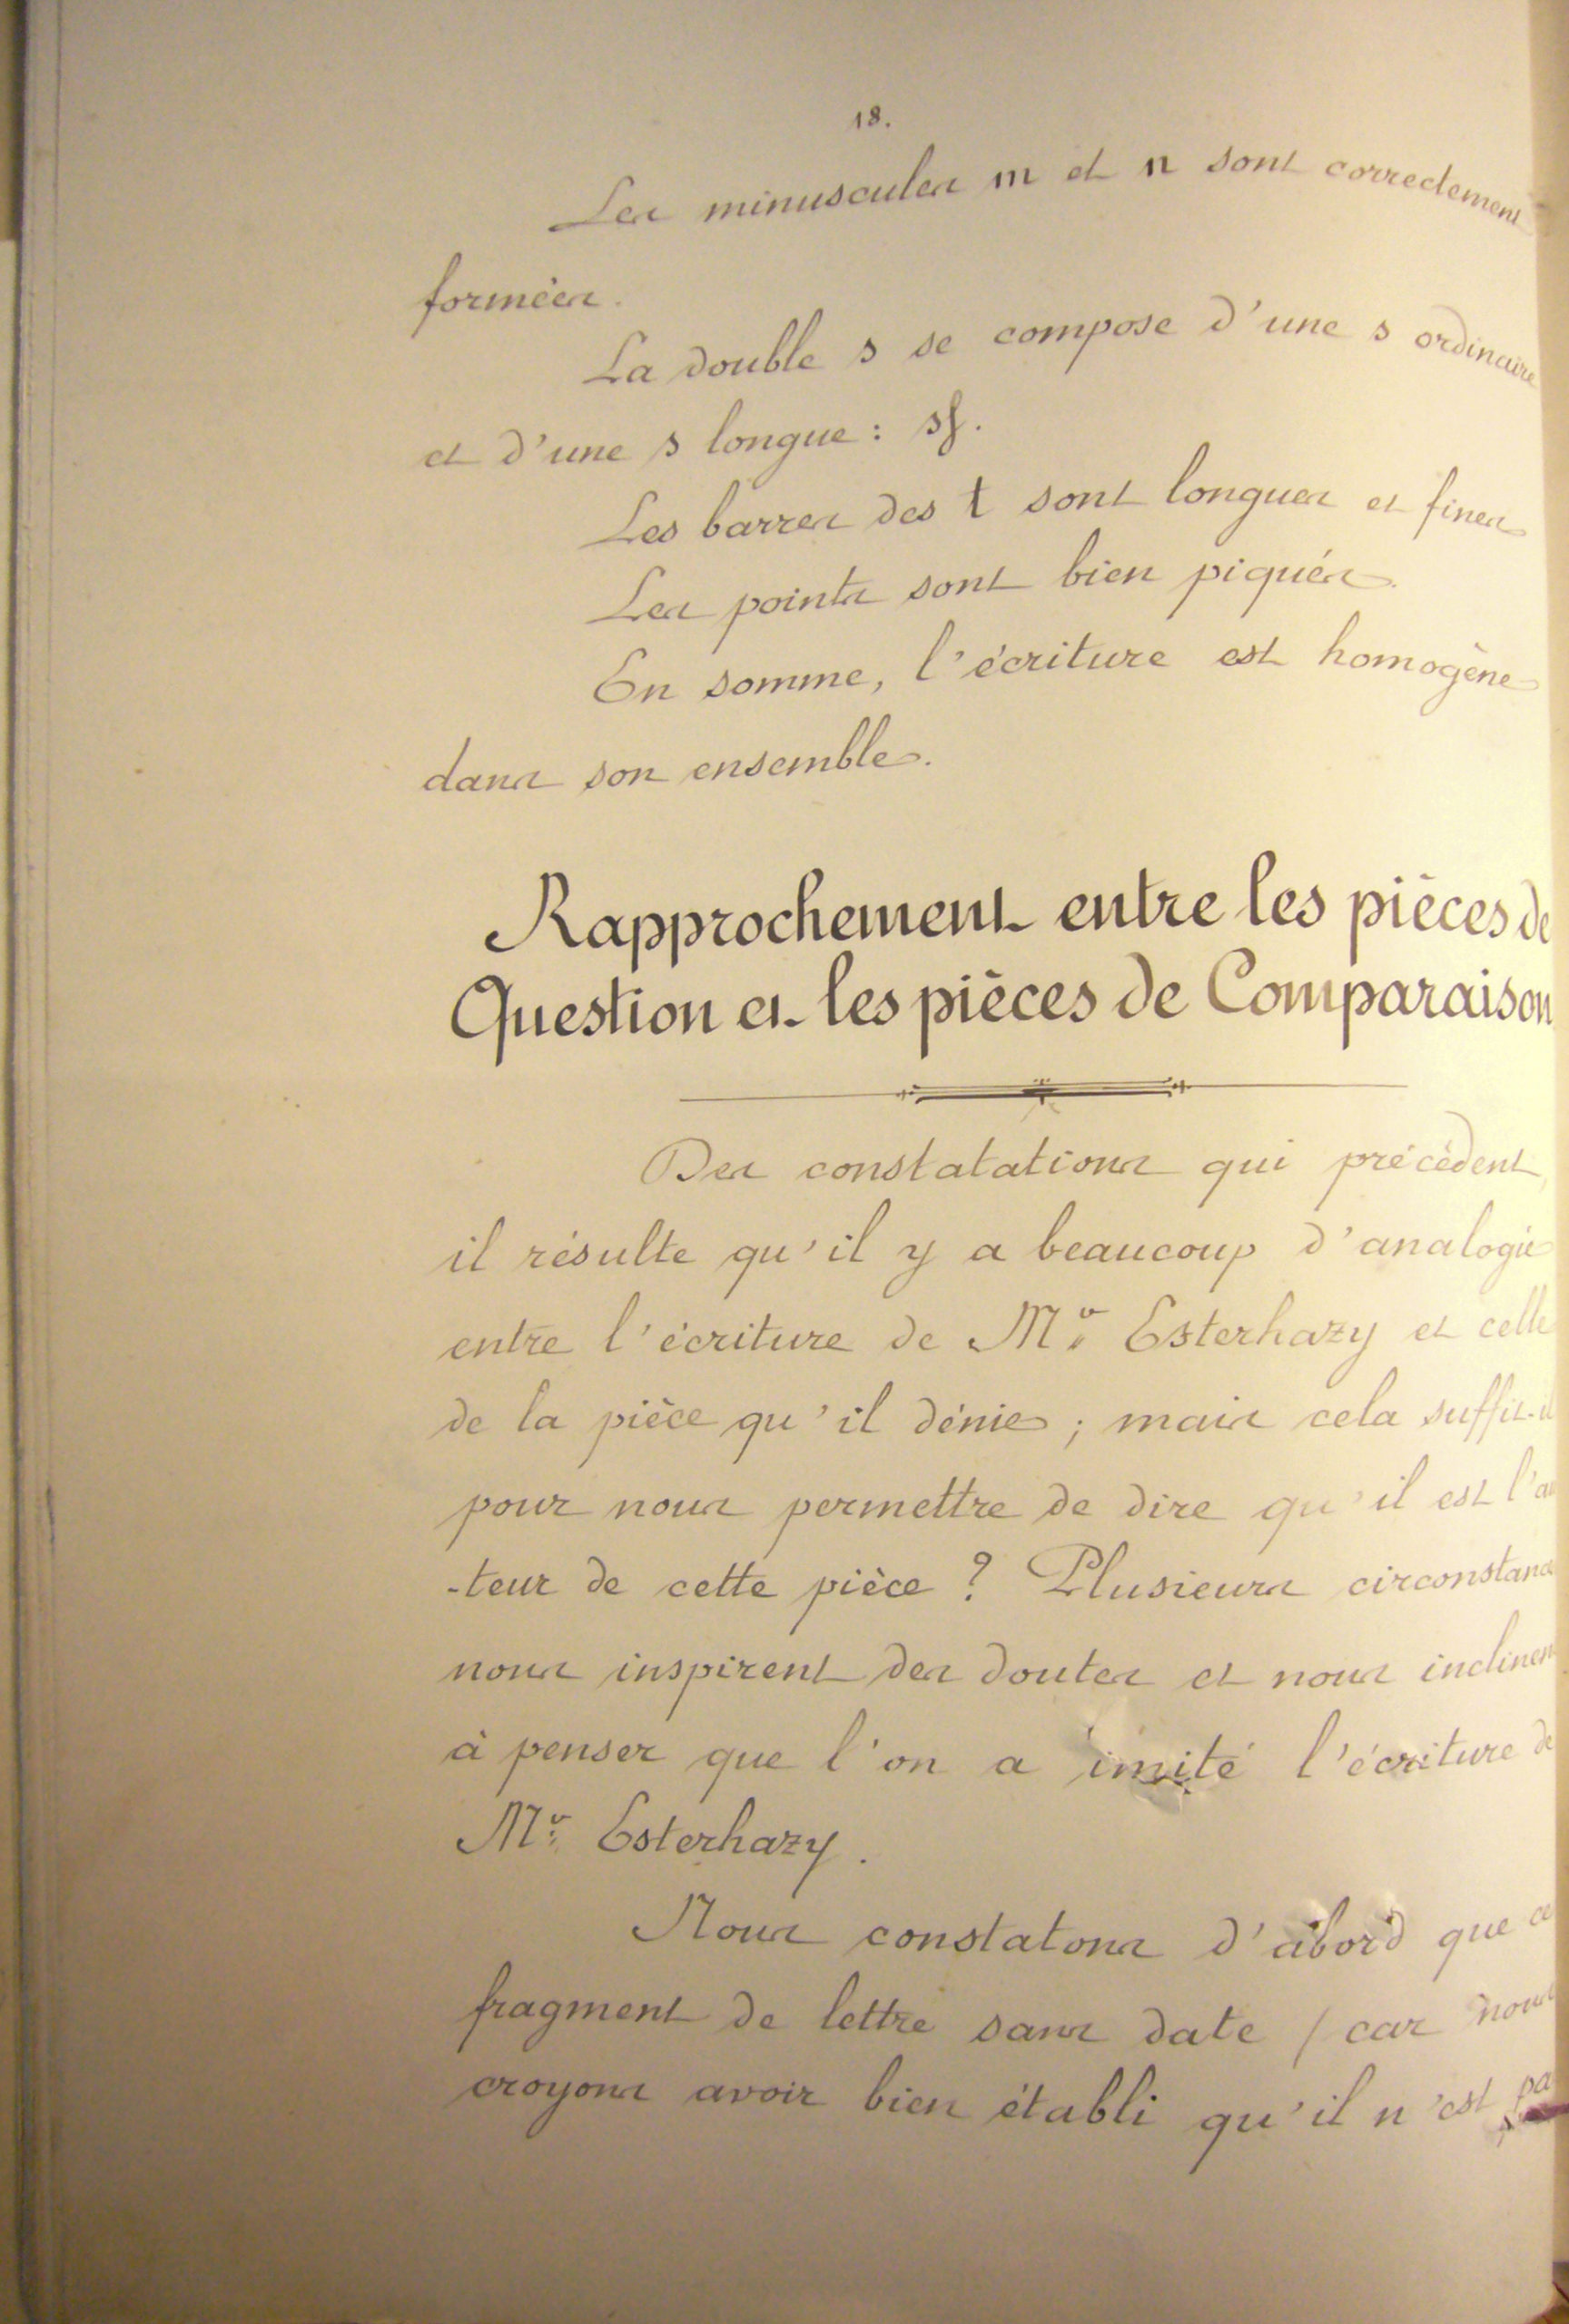 18.
Les minuscules m et n sont correctement
formées.
La double s se compose d'une s ordinaire
et d'une s longue : sſ.
Les barres des t sont longues et fines
Les points sont bien piqués.
En somme, l'écriture est homogène
dans son ensemble.
Rapprochement entre les pièces de
Question et les pièces de Comparaison
Des constatations qui précèdent,
il résulte qu'il y a beaucoup d'analogie
entre l'écriture de Mr Esterhazy et celle
de la pièce qu'il dénie ; mais cela suffit-il
pour nous permettre de dire qu'il est l'au
-teur de cette pièce ? Plusieurs circonstance
nous inspirent des doutes et nous inclinent
à penser que l'on a imité l'écriture de
Mr Esterhazy.
Nous constatons d'abord que ce
fragment de lettre sans date (car nous
croyons avoir bien établi qu'il n'est pa